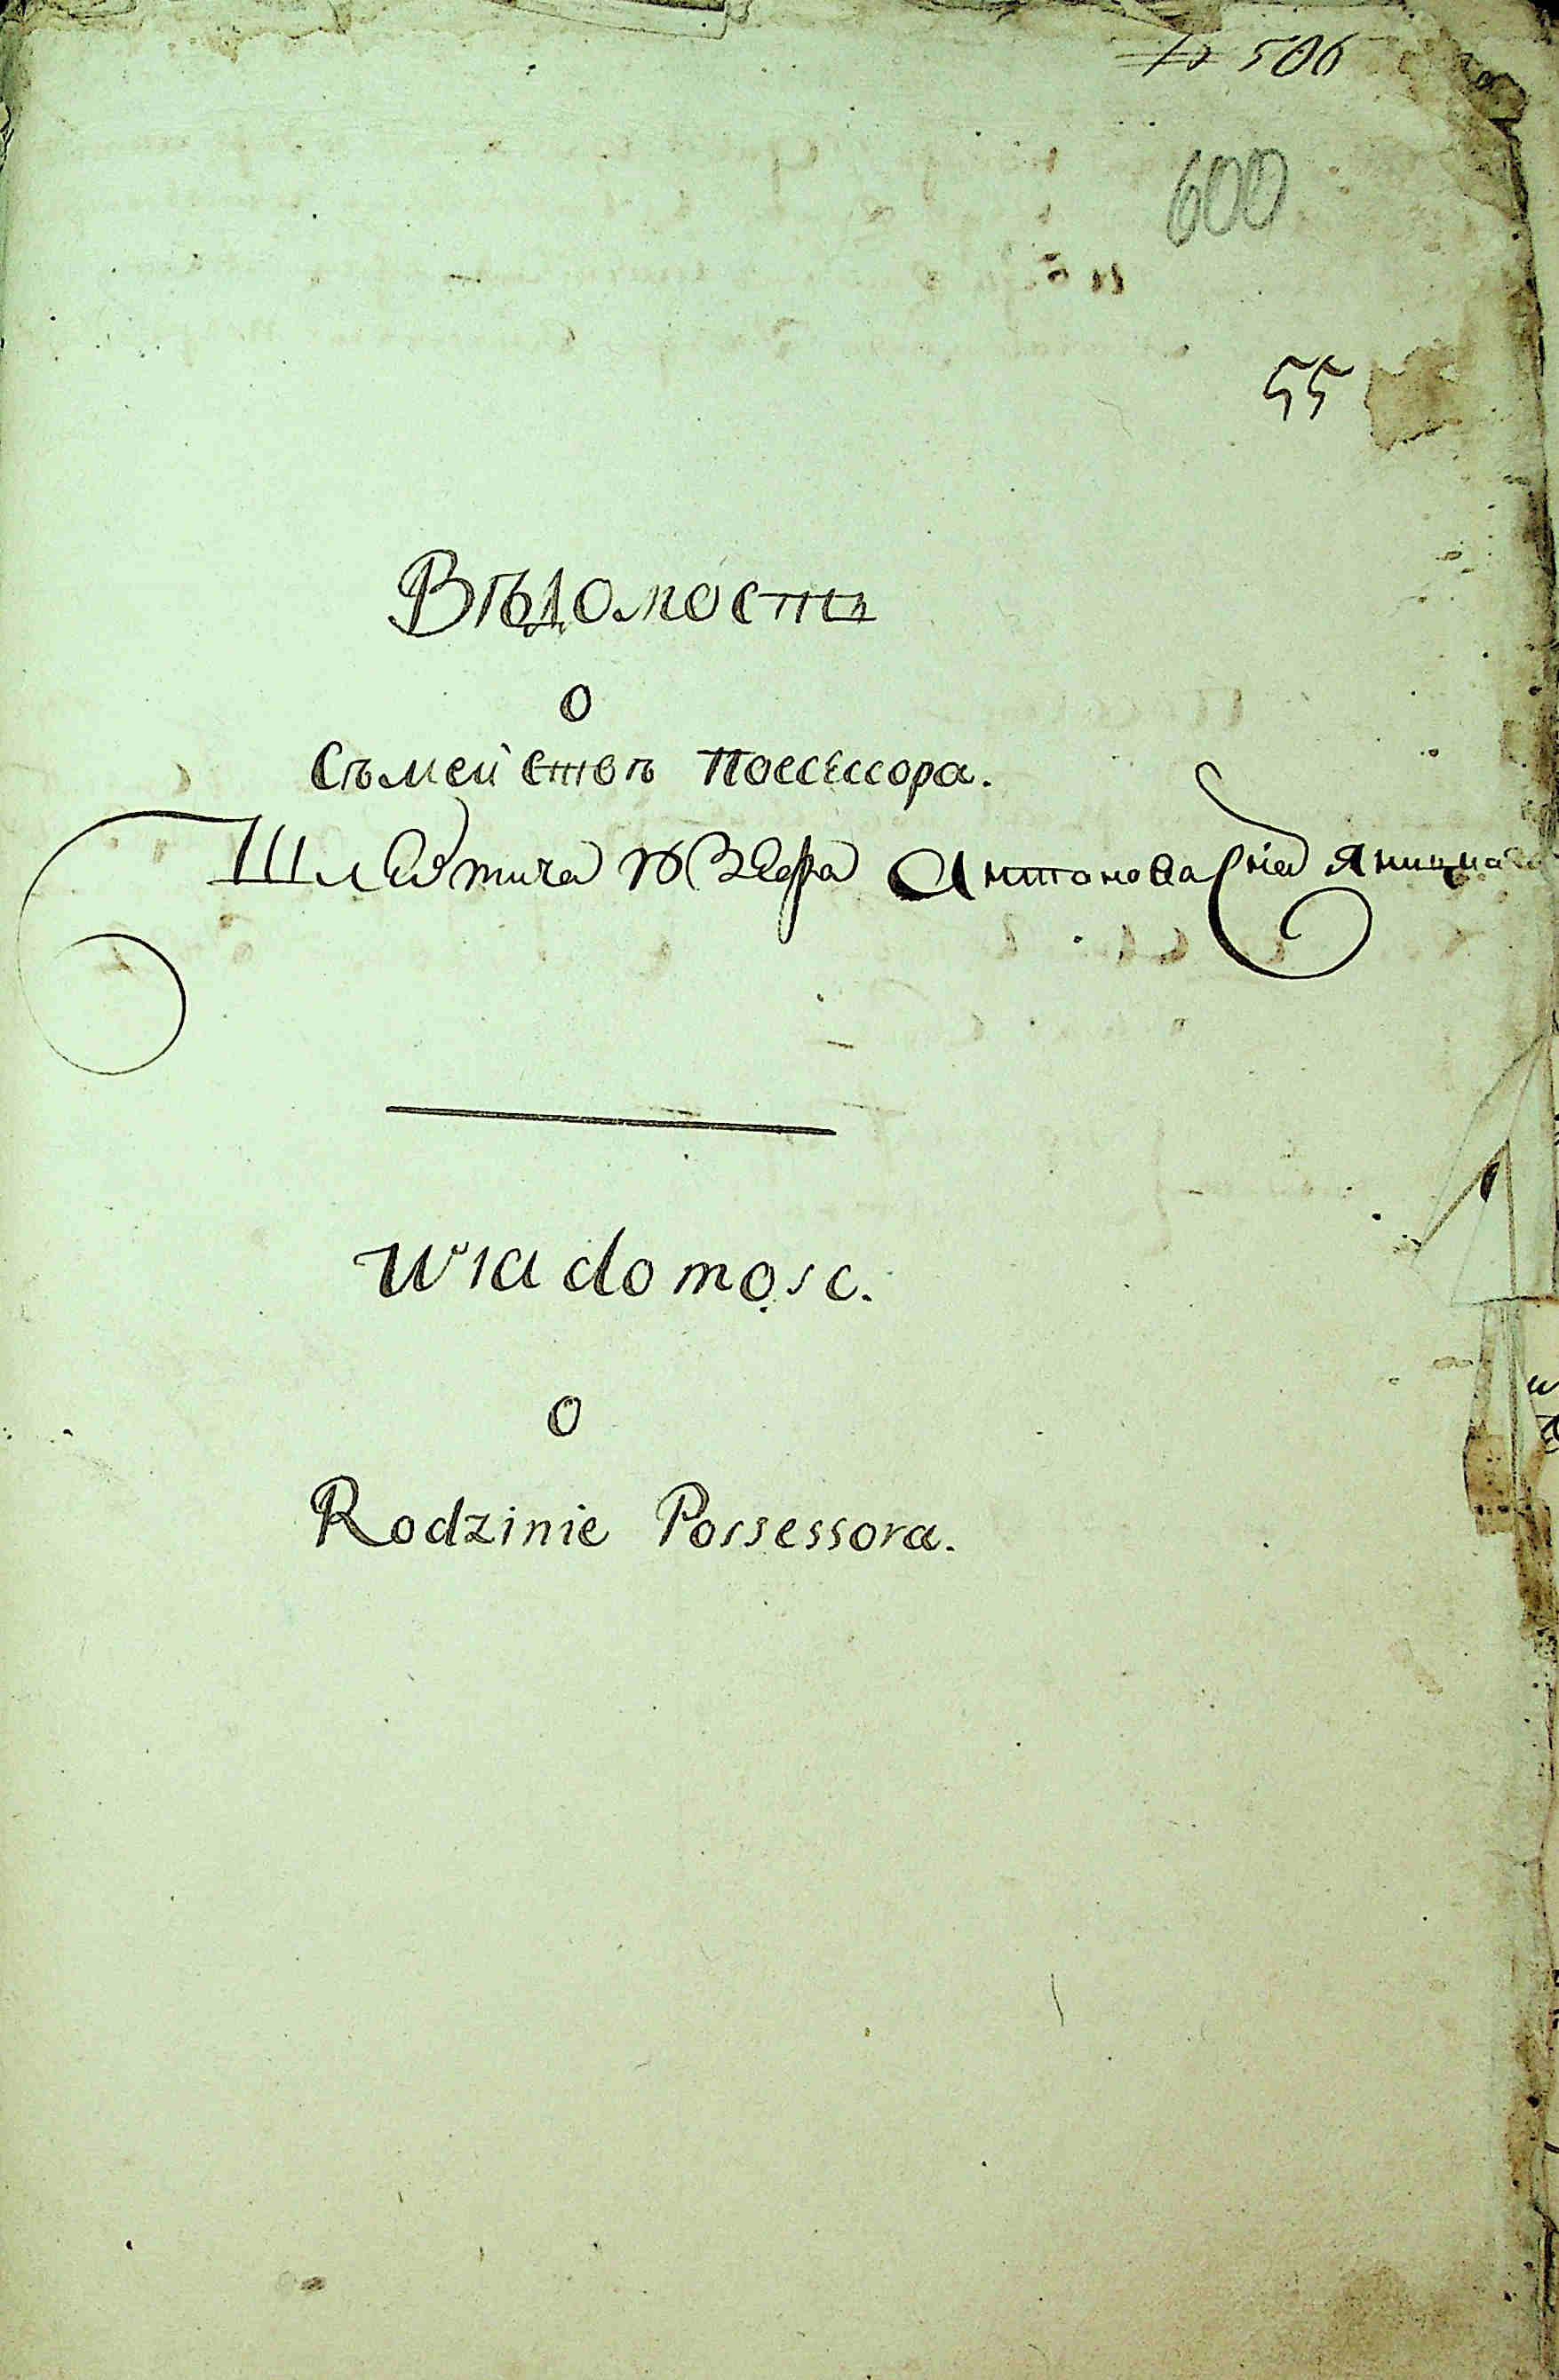 506
600
55
Вѣдомость
о
Сѣмействѣ Поссессора.
Шляхтича Антонова Сна
Wiadomosc.
o
Rodzinie Possessora.